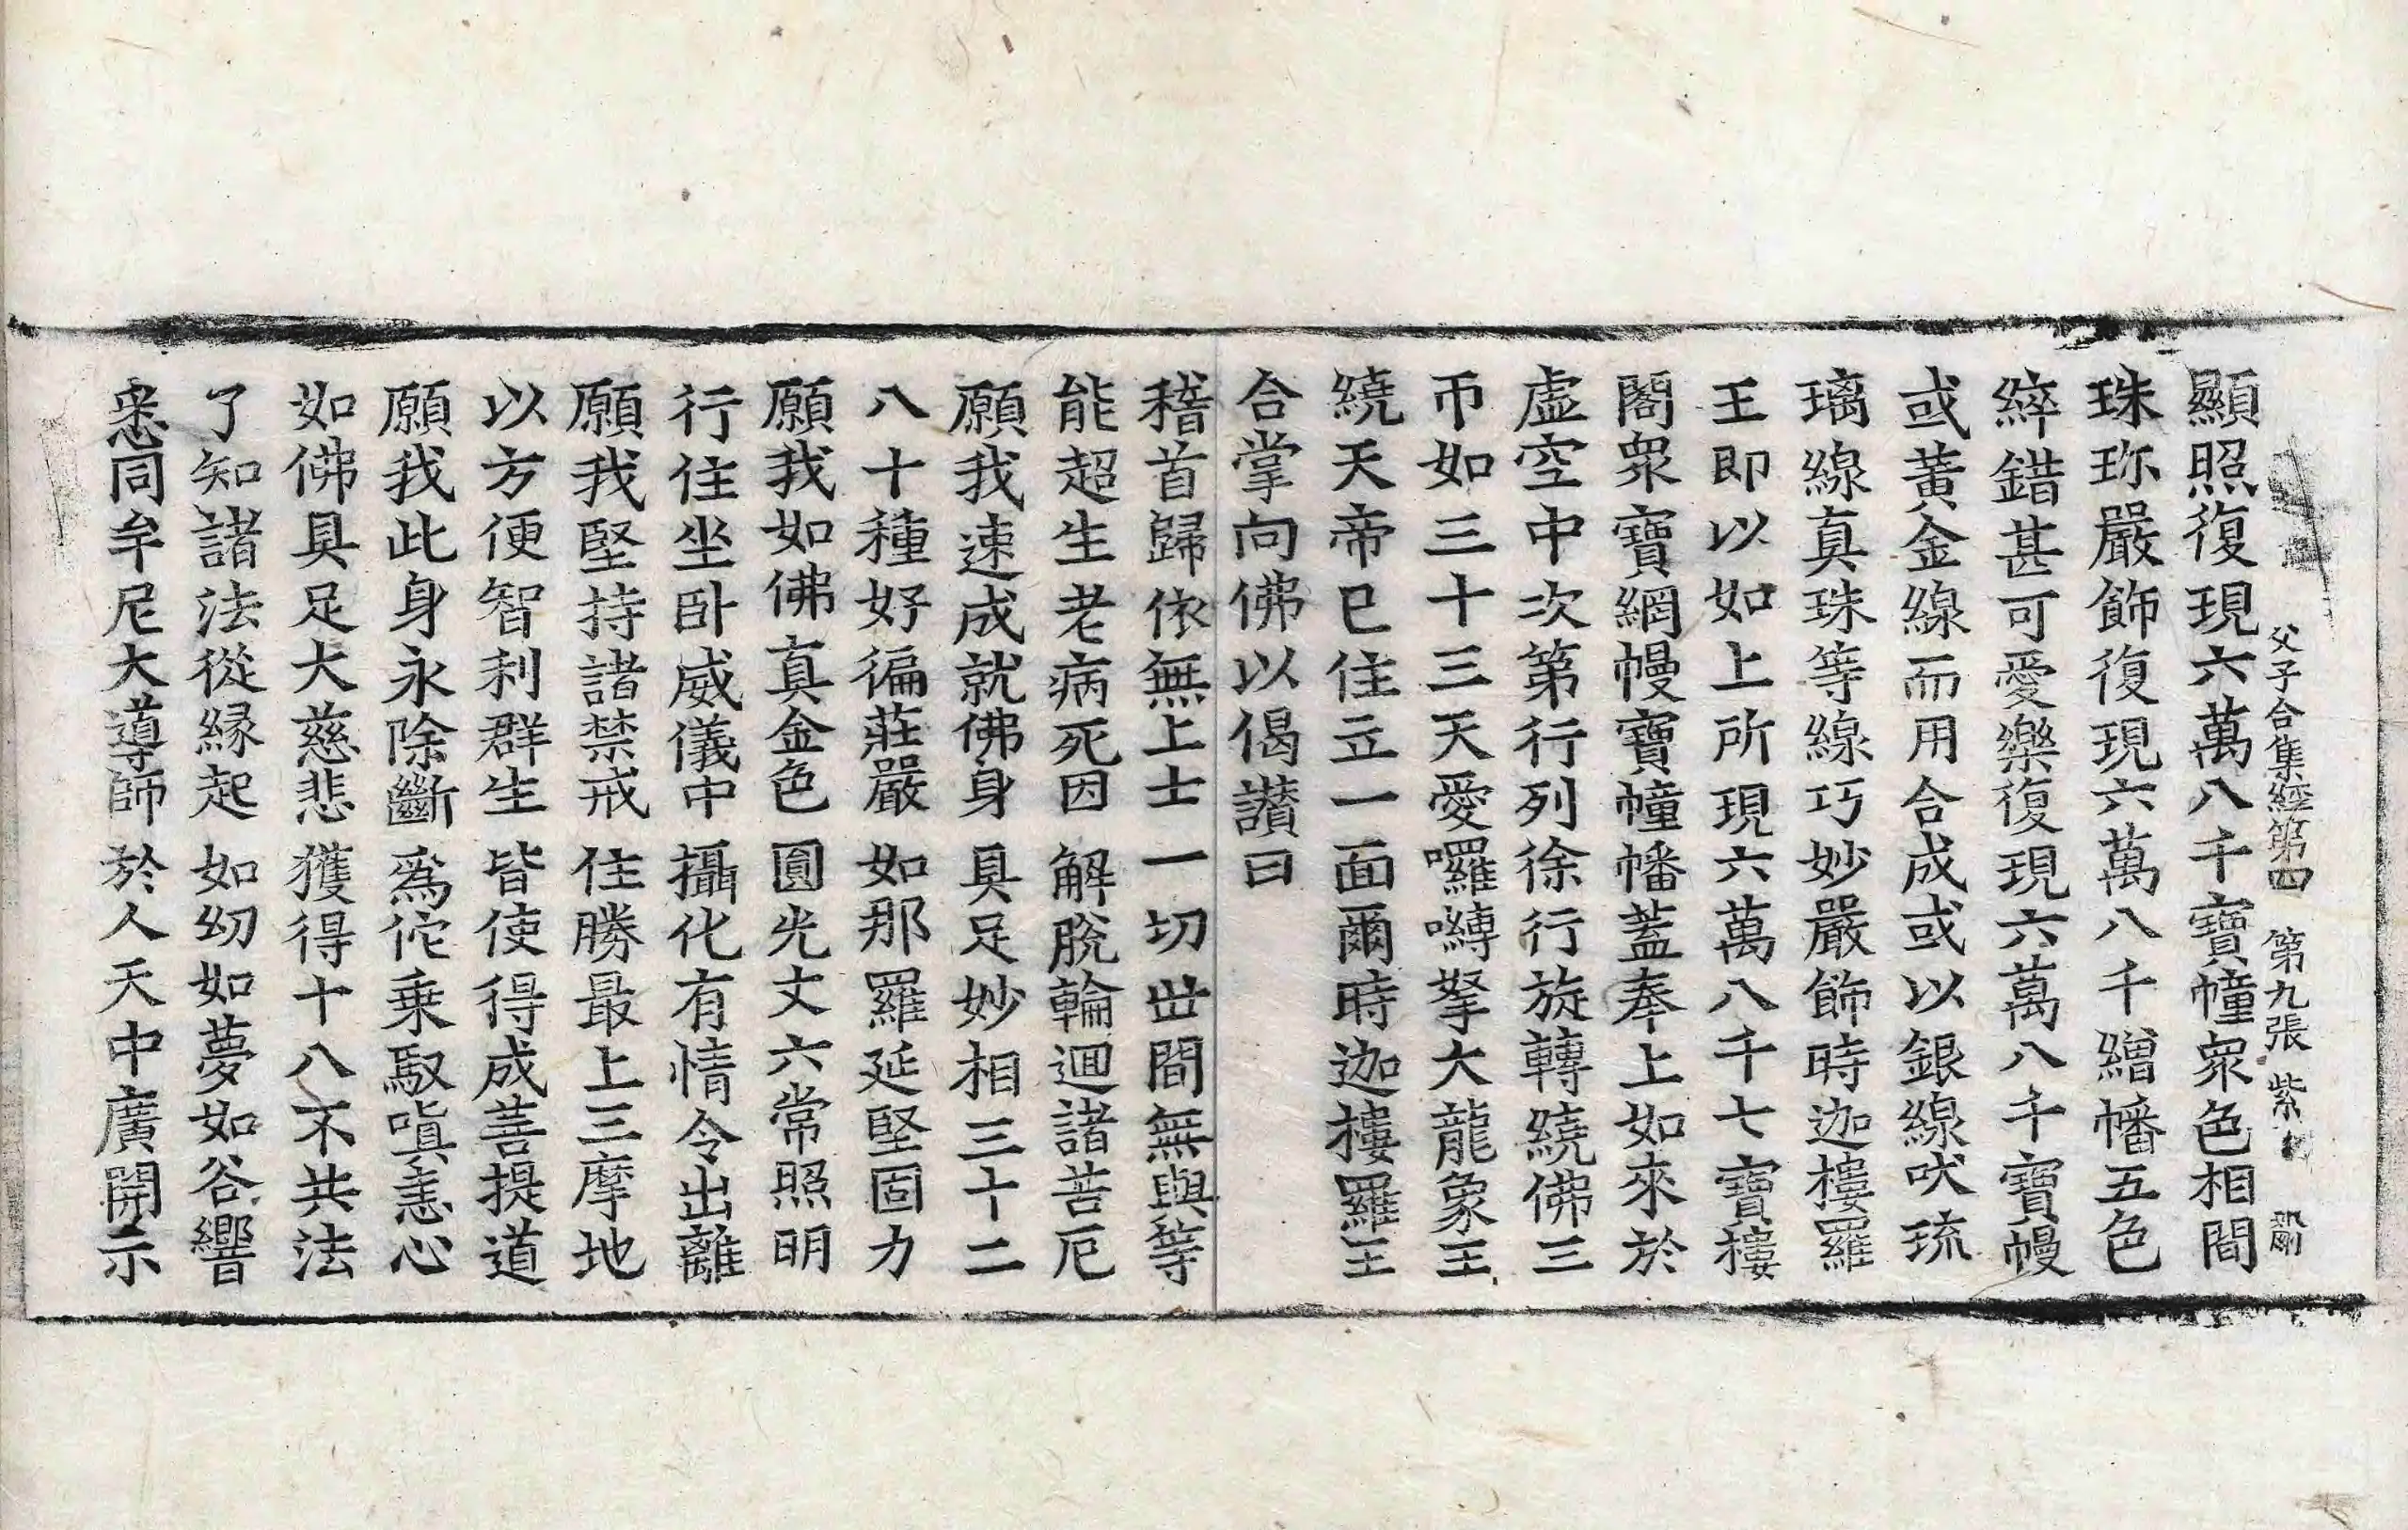 父子合集經第四 第九張 紫
顯照復現六萬八千寶幢衆色相間
珠珎嚴飾復現六萬八千繒幡五色
綷錯甚可愛樂復現六萬八千寶幔
或黃金線而用合成或以銀線吠琉
璃線真珠等線巧妙嚴飾時迦樓羅
王即以如上所現六萬八千七寶樓
閣衆寶網幔寶幢幡蓋奉上如來於
虛空中次第行列徐行旋轉繞佛三
帀如三十三天愛囉嚩拏大龍象王
繞天帝已住立一面爾時迦樓羅王
合掌向佛以偈讃曰
稽首歸依無上士 一切丗間無與等
能超生老病死因 解脫輪迴諸苦厄
願我速成就佛身 具足妙相三十二
八十種好徧莊嚴 如那羅延堅固力
願我如佛真金色 圓光丈六常照明
行住坐卧威儀中 攝化有情令出離
願我堅持諸禁戒 住勝最上三摩地
以方便智利群生 皆使得成菩提道
願我此身永除斷 爲佗乗馭嗔恚心
如佛具足大慈悲 獲得十八不共法
了知諸法從縁起 如幻如夢如谷響
悉同牟尼大導師 於人天中廣開示